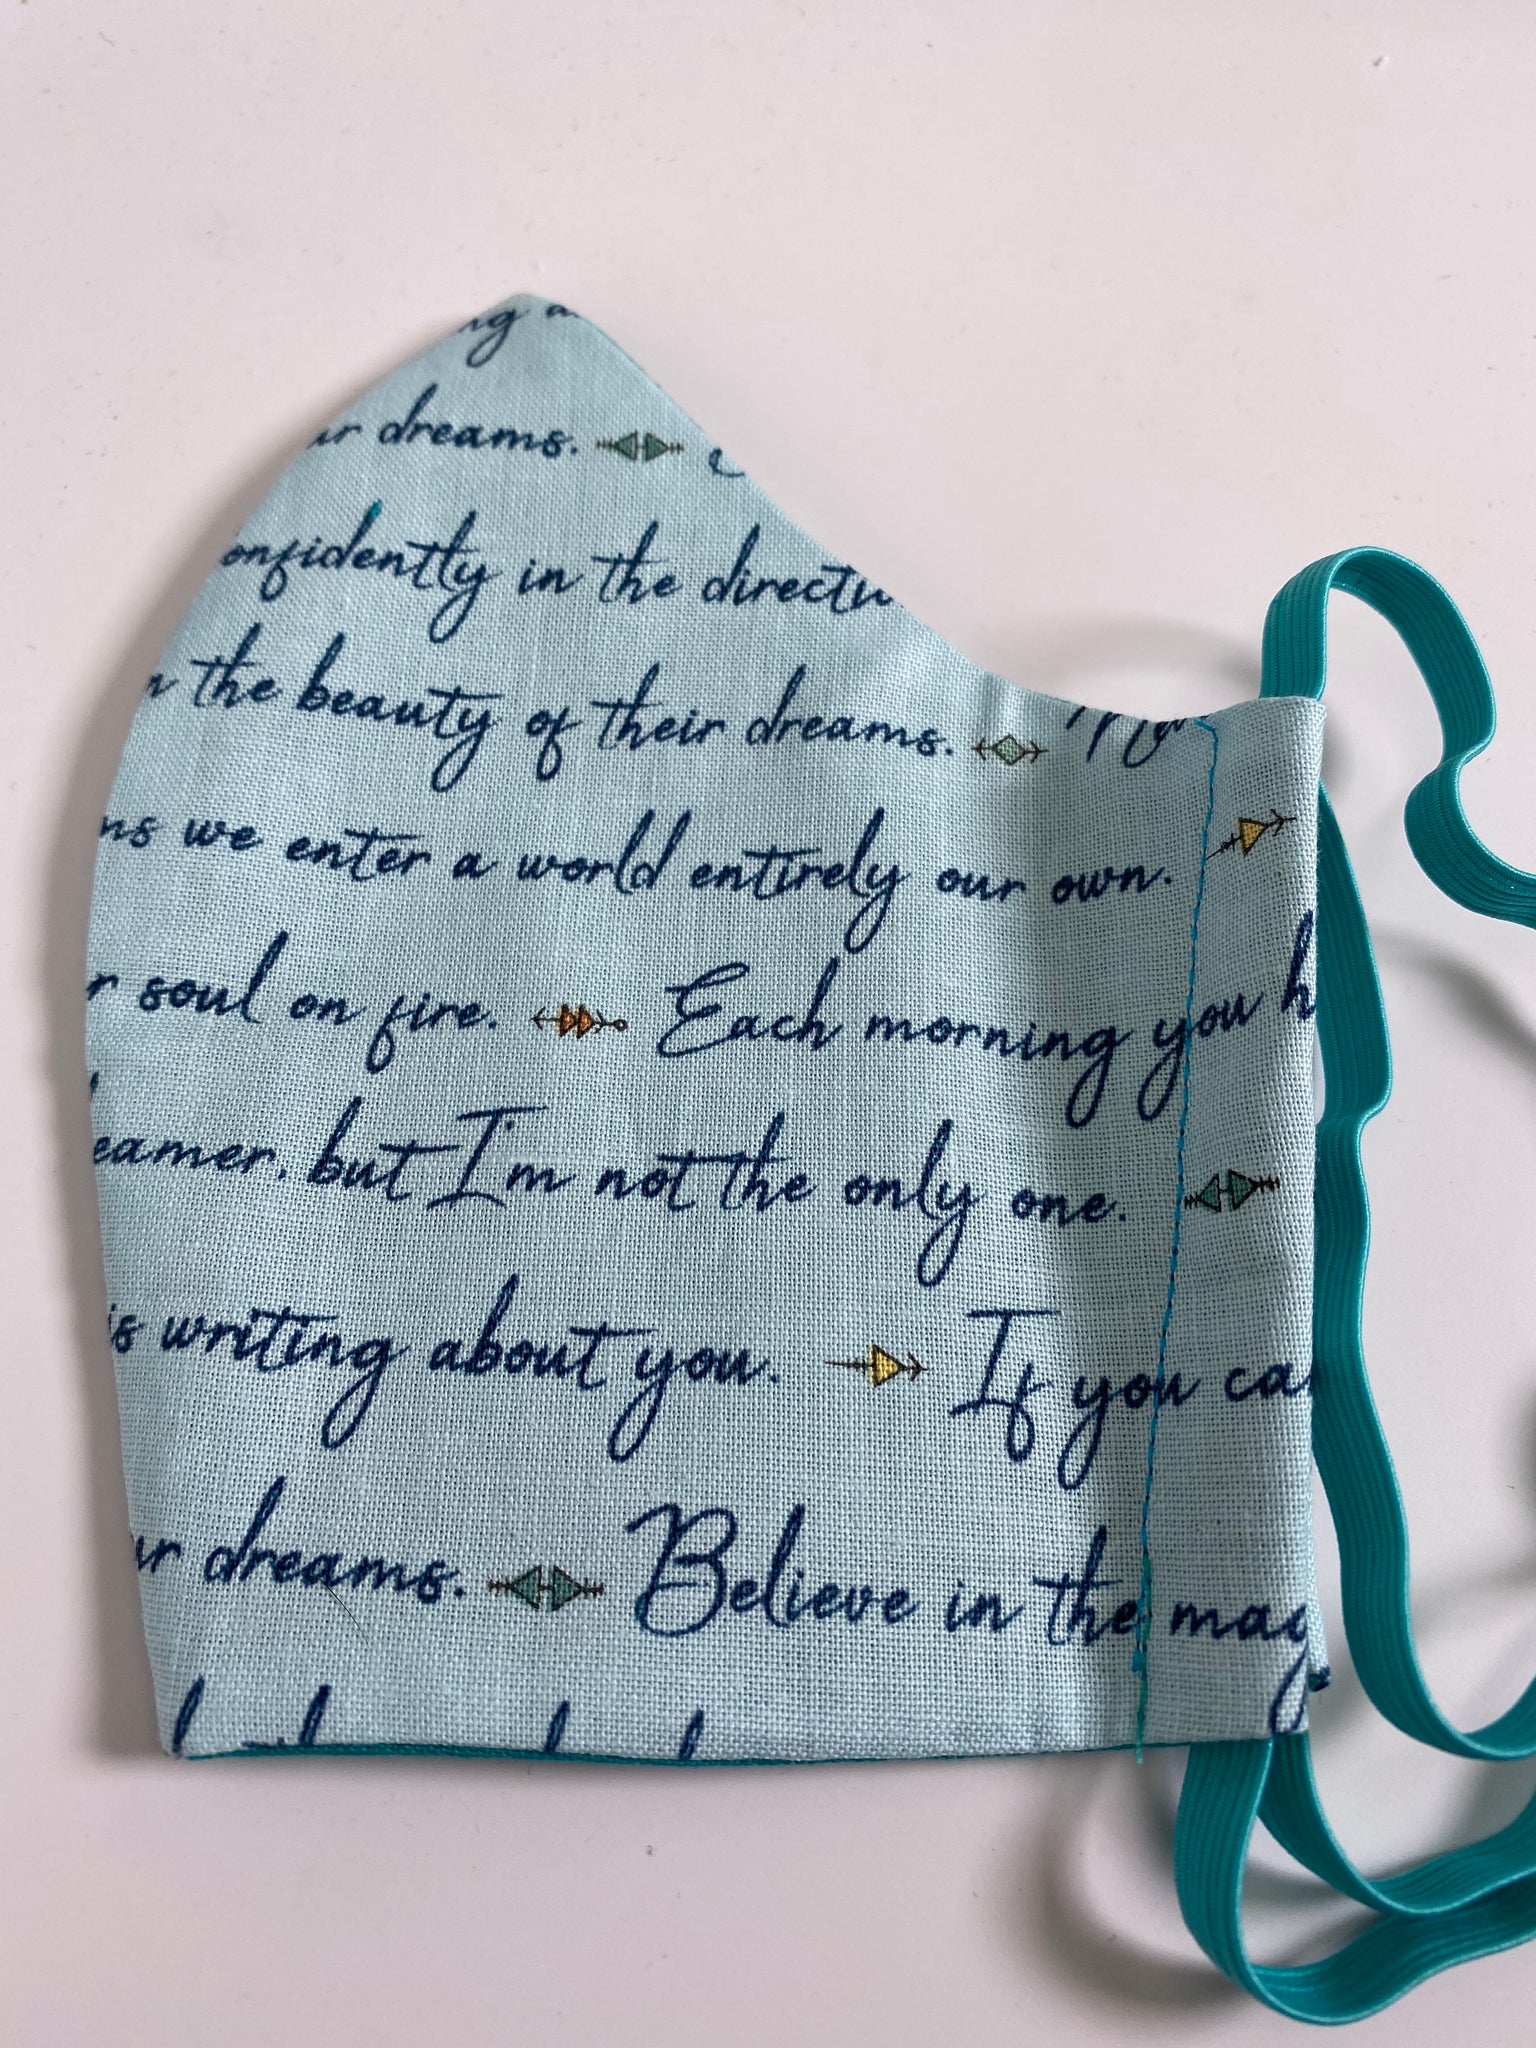 dreams.
confidently in the
the beauty of their dreams.
we enter a world entirely our own.
soul on fire. Each morning you
but I'm not the only one.
is writing about you. If you
dreams. Believe in the